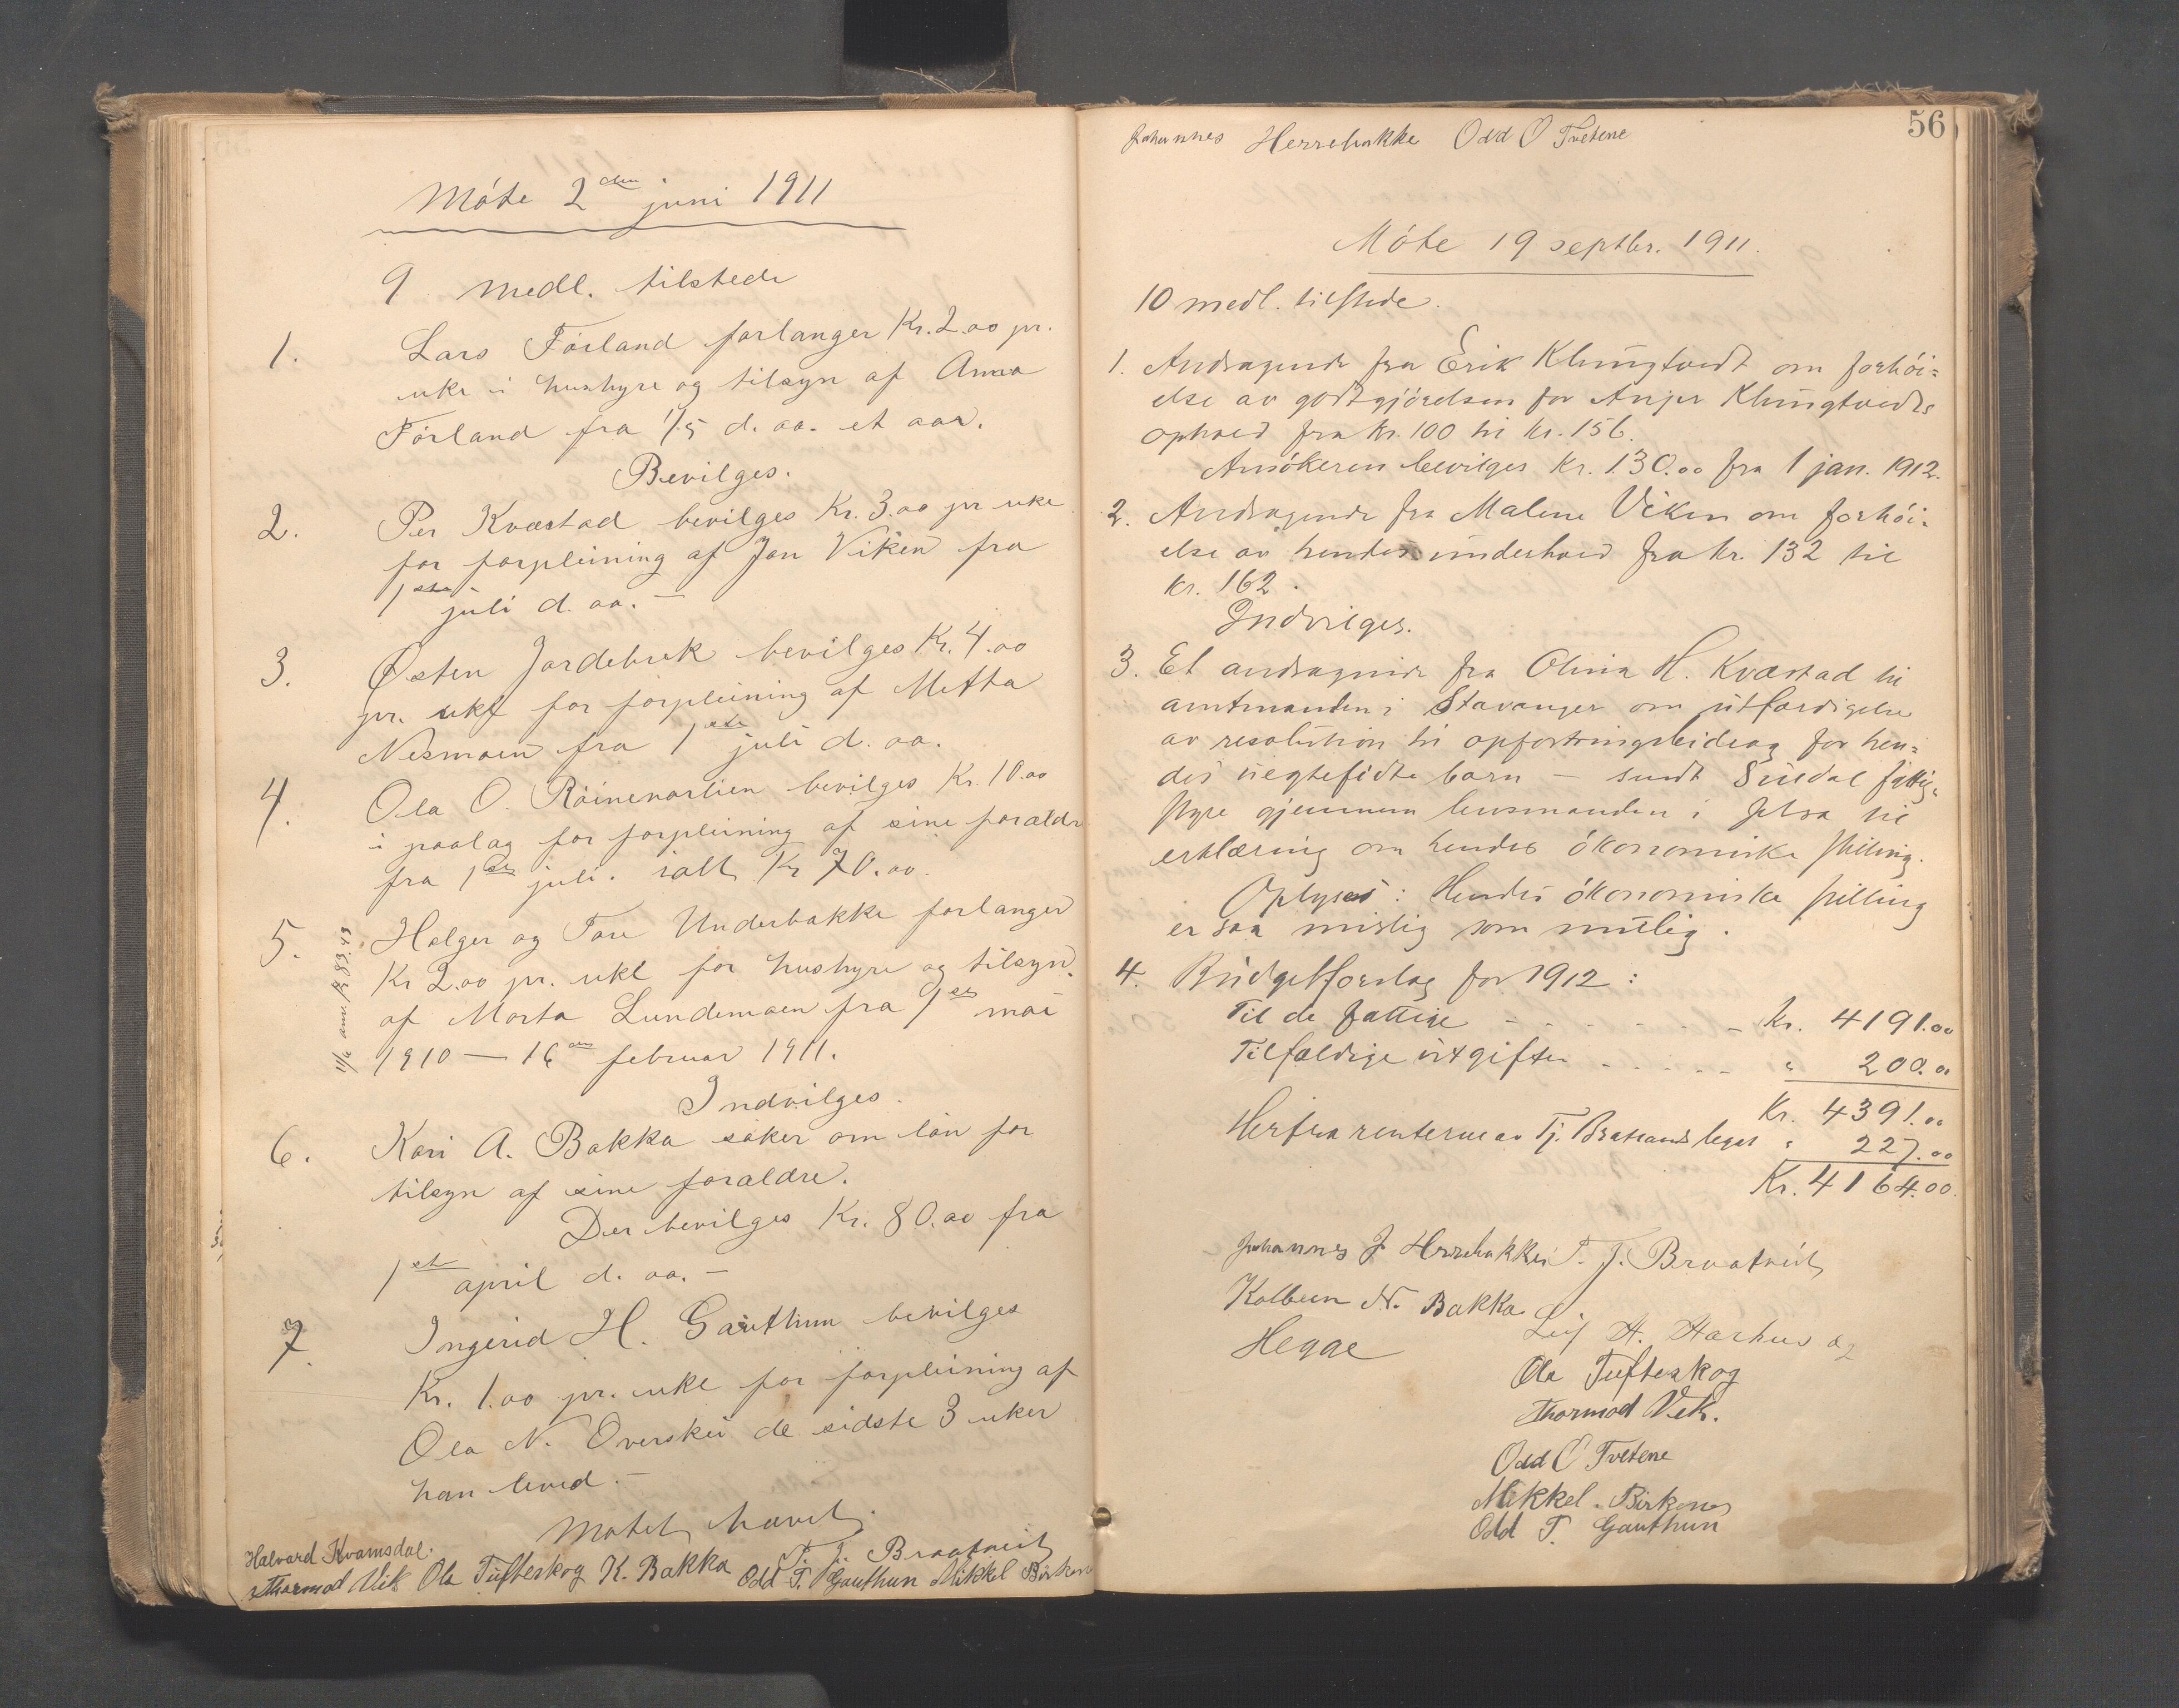 Møte 2den juni 1911
9 medl. tilstede
1. Lars Førland forlanger Kr. 2.00 pr.
uke i hushyre og tilsyn af Anna
Førland fra 1/5 d. aa. et aar.
Bevilges.
2. Per Kvæstad bevilges Kr. 3.00 pr uke
for forpleining af Jon Viken fra
1ste juli d. aa. –
3. Østen Jordebrek bevilges Kr. 4.00
pr. uke for forpleining af Metha
Nesmoen fra 1ste juli d. aa.
4. Ola O. bevilges Kr. 10.00
i paalag for forpleining af sine forældr
fra 1ste juli. ialt Kr 70.00.
5. Helger og Tore Underbakke forlanger
Kr 2.00 pr. uke for hushyre og tilsyn
af Marta Lundemoen fra 1ste mai
1910 — 16den februar 1911.
Kr 83.43
Indvilges.
6. Kari A. Bakka søker om løn for
tilsyn af sine forældre.
Der bevilges Kr. 80.00 fra
1ste april d. aa. –
7. Ingerid H. Gauthun bevilges
Kr. 1.00 pr. uke for forpleining af
Ola N. Overskei de sidste 3 uker
han leved. –
Møtet hævet.
T. J. Braatveit
Halvard Kvamsdal.
Thormod Vik Ola Tufteskog K. Bakka Odd T. Gauthun Mikkel Birkenes
56
Johannes Herrebakke Odd O Tvetene
Møte 19 septbr. 1911.
10 medl. tilstede.
1. Andragende fra Erik Klungtvedt om forhøi=
else av godtgjørelsen for Klungtvedts
ophold fra kr. 100 til kr. 156.
Ansøkeren bevilges kr. 130.00 fra 1 jan. 1912.
2. Andragende fra Malene Viken om forhøi=
else av hendes underhold fra kr. 132 til
kr. 162.
Indvilges.
3. Et andragende fra Olina H. Kvæstad til
amtmanden i Stavanger om utfærdigelse
av resolution til opfostringsbidrag for hen=
des uegtefødte barn – sendt Suldal fattig=
styre gjennem lensmanden i Jelsa til
erklæring om hendes økonomiske stilling.
Oplyses: Hendes økonomiske stilling
er saa mislig som mulig.
4. Budgetforslag for 1912:
Til de fattige - - - - - - - Kr. 4191.00
Tilfældige utgifter - - - - - " 200.00
Kr. 4391.00
Herfra renterne av Tj. Bratlands legat " 227.00
Kr. 4164.00.
Johannes J Herrebakke T. J. Braatveit
Kolbein N. Bakka
Leif H. Aarhus
Hegae
Ola Tufteskog
Thormod Vik.
Odd O Tvetene
Mikkel Birkenes
Odd T. Gauthun